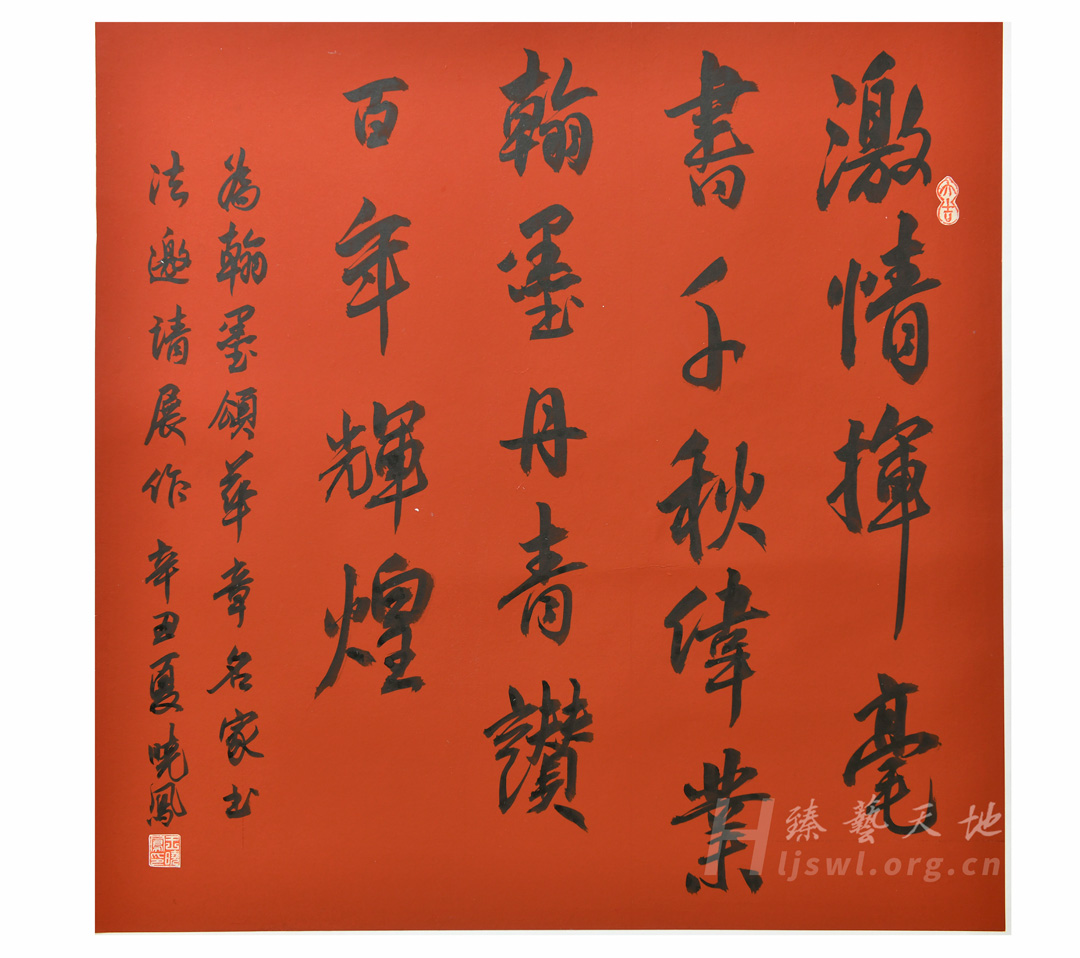 激情揮毫
書千秋偉業
翰墨丹青讚
百年輝煌
為翰墨頌華章名家书
法邀請展作 辛丑夏曉鳳
臻藝天地
ljswl.org.cn